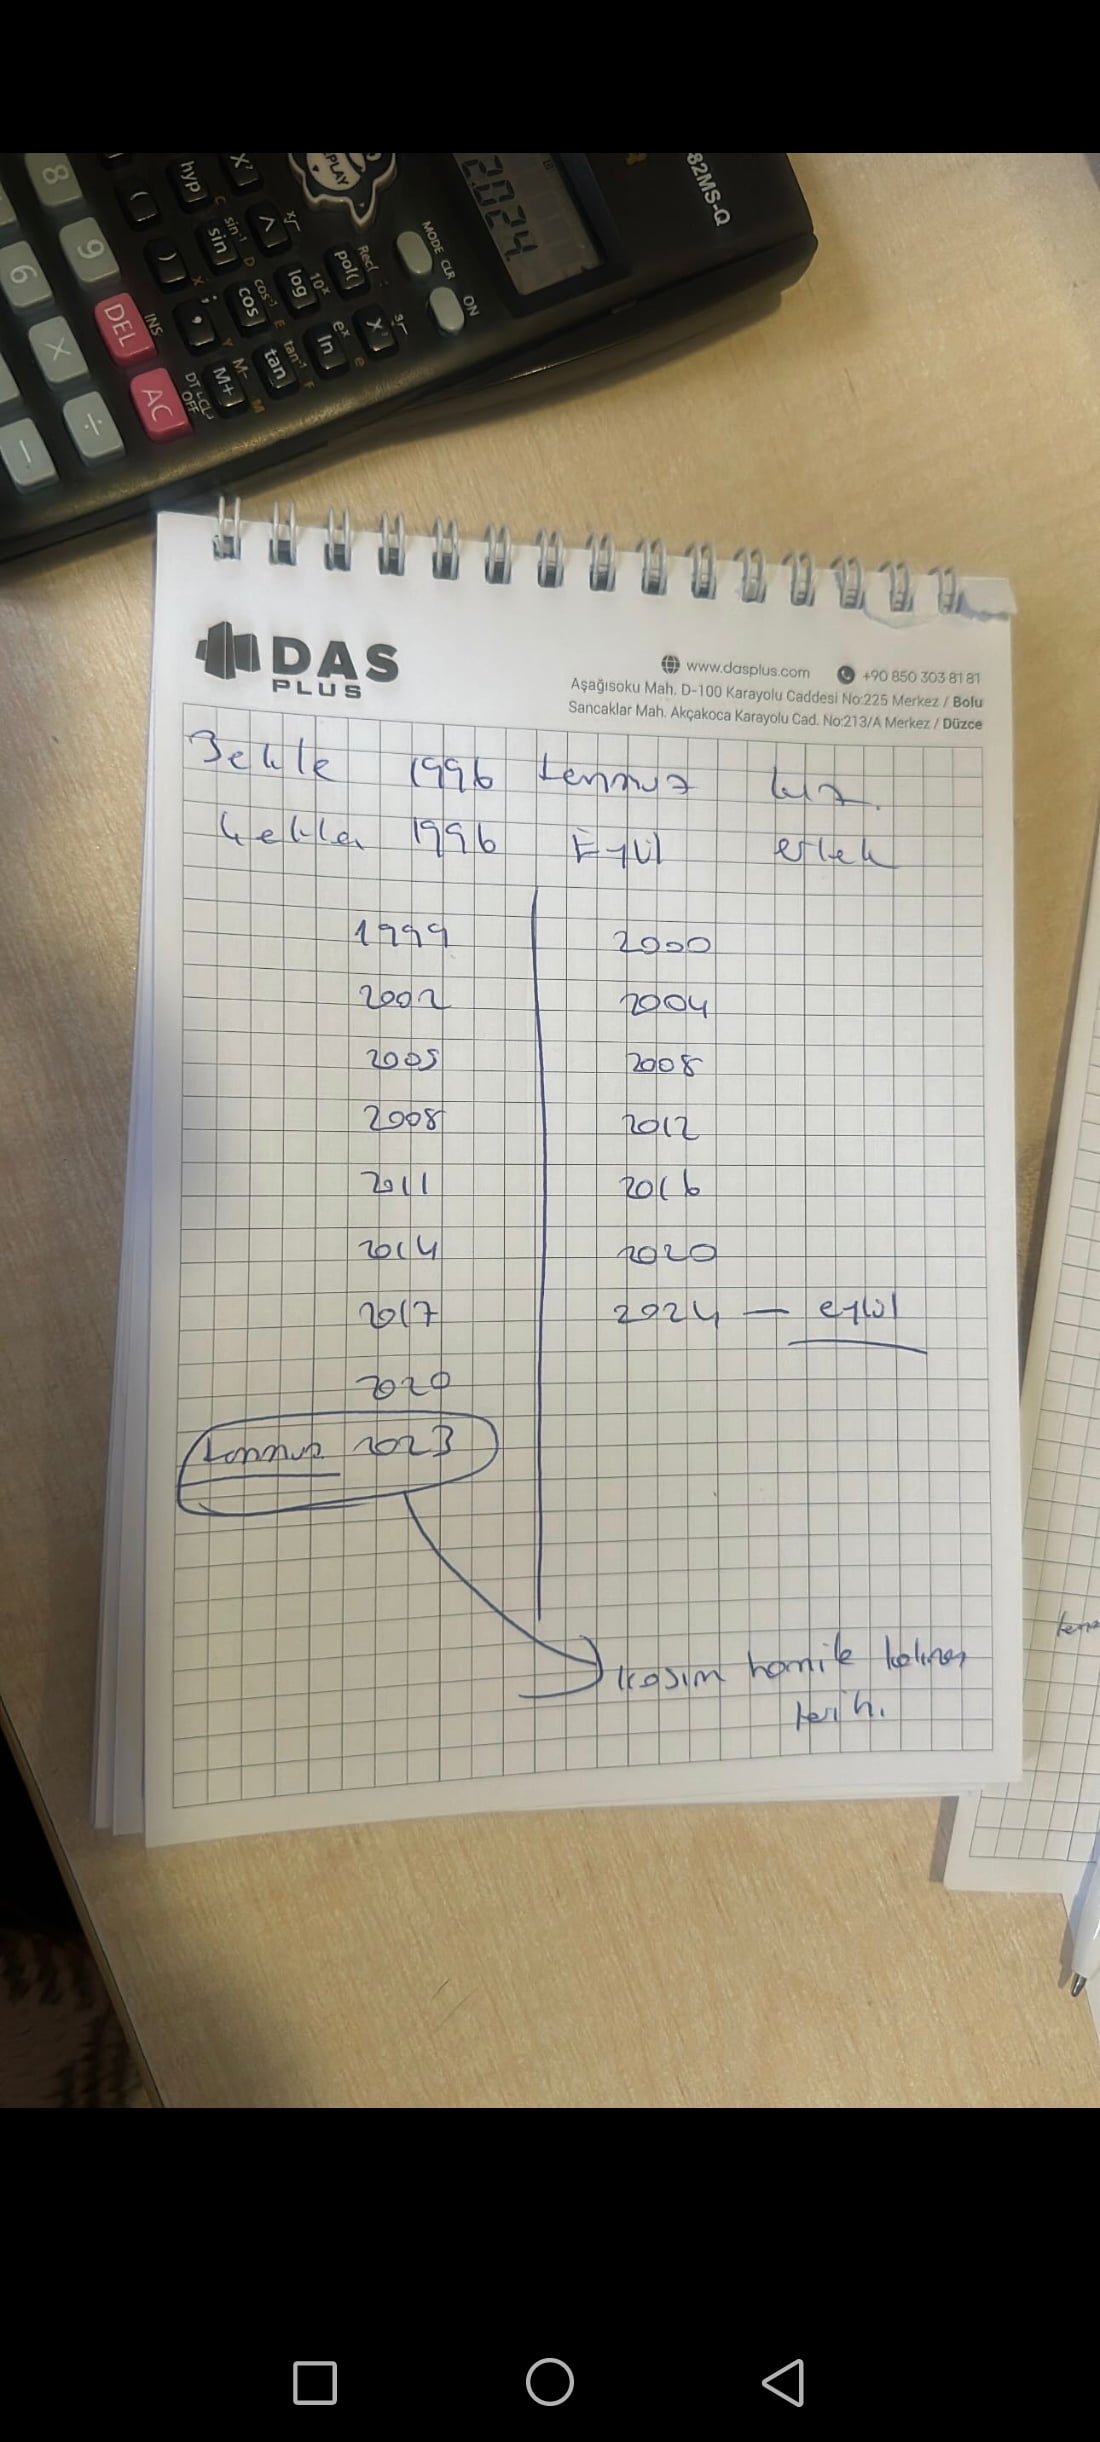 82MS-Q
2024
PLAY
MODE CLR ON
hyp sin cos tan
X² ^ log ln
Rec( : pol( X³
sin⁻¹ D cos⁻¹ E tan⁻¹ F
10ˣ eˣ e
8 9 INS DEL DT CL OFF AC
( ) , ; M+ M- M
6 × ÷ −
DAS
PLUS
www.dasplus.com +90 850 303 81 81
Aşağısoku Mah. D-100 Karayolu Caddesi No:225 Merkez / Bolu
Sancaklar Mah. Akçakoca Karayolu Cad. No:213/A Merkez / Düzce
1996 temmuz kız.
1996 Eylül erkek
1999 2000
2002 2004
2005 2008
2008 2012
2011 2016
2014 2020
2017 2024 — eylül
2020
temmuz 2023
kasım hamile kalınan
tarih.